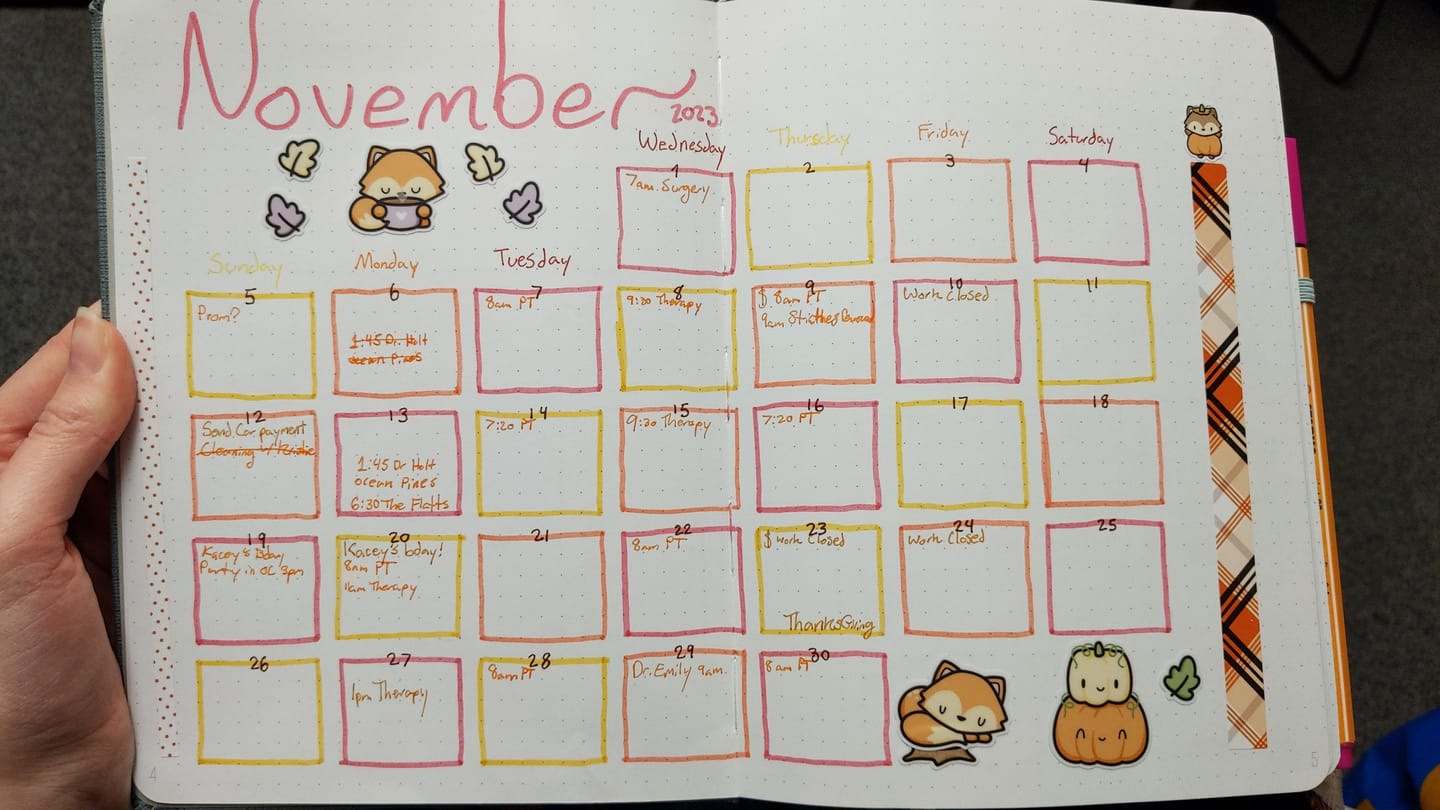 November
2023
Wednesday Thursday Friday Saturday
1 2 3 4
7am Surgery
Sunday Monday Tuesday
5 6 7 8 9 10 11
Prom?
1:45 Dr. Holt
ocean Pines
8am PT
9:30 Therapy
$ 8am PT
9am Stitches
Work Closed
12 13 14 15 16 17 18
Send Car payment
Cleaning w/
1:45 Dr Holt
ocean Pines
6:30 The Flatts
7:20 PT
9:30 Therapy
7:20 PT
19 20 21 22 23 24 25
Kacey's Bday
Party in OC 3pm
Kacey's bday!
8am PT
11am Therapy
8am PT
$ work Closed
ThanksGiving
work Closed
26 27 28 29 30
1pm Therapy
8am PT
Dr. Emily 9am
8am PT
4
5